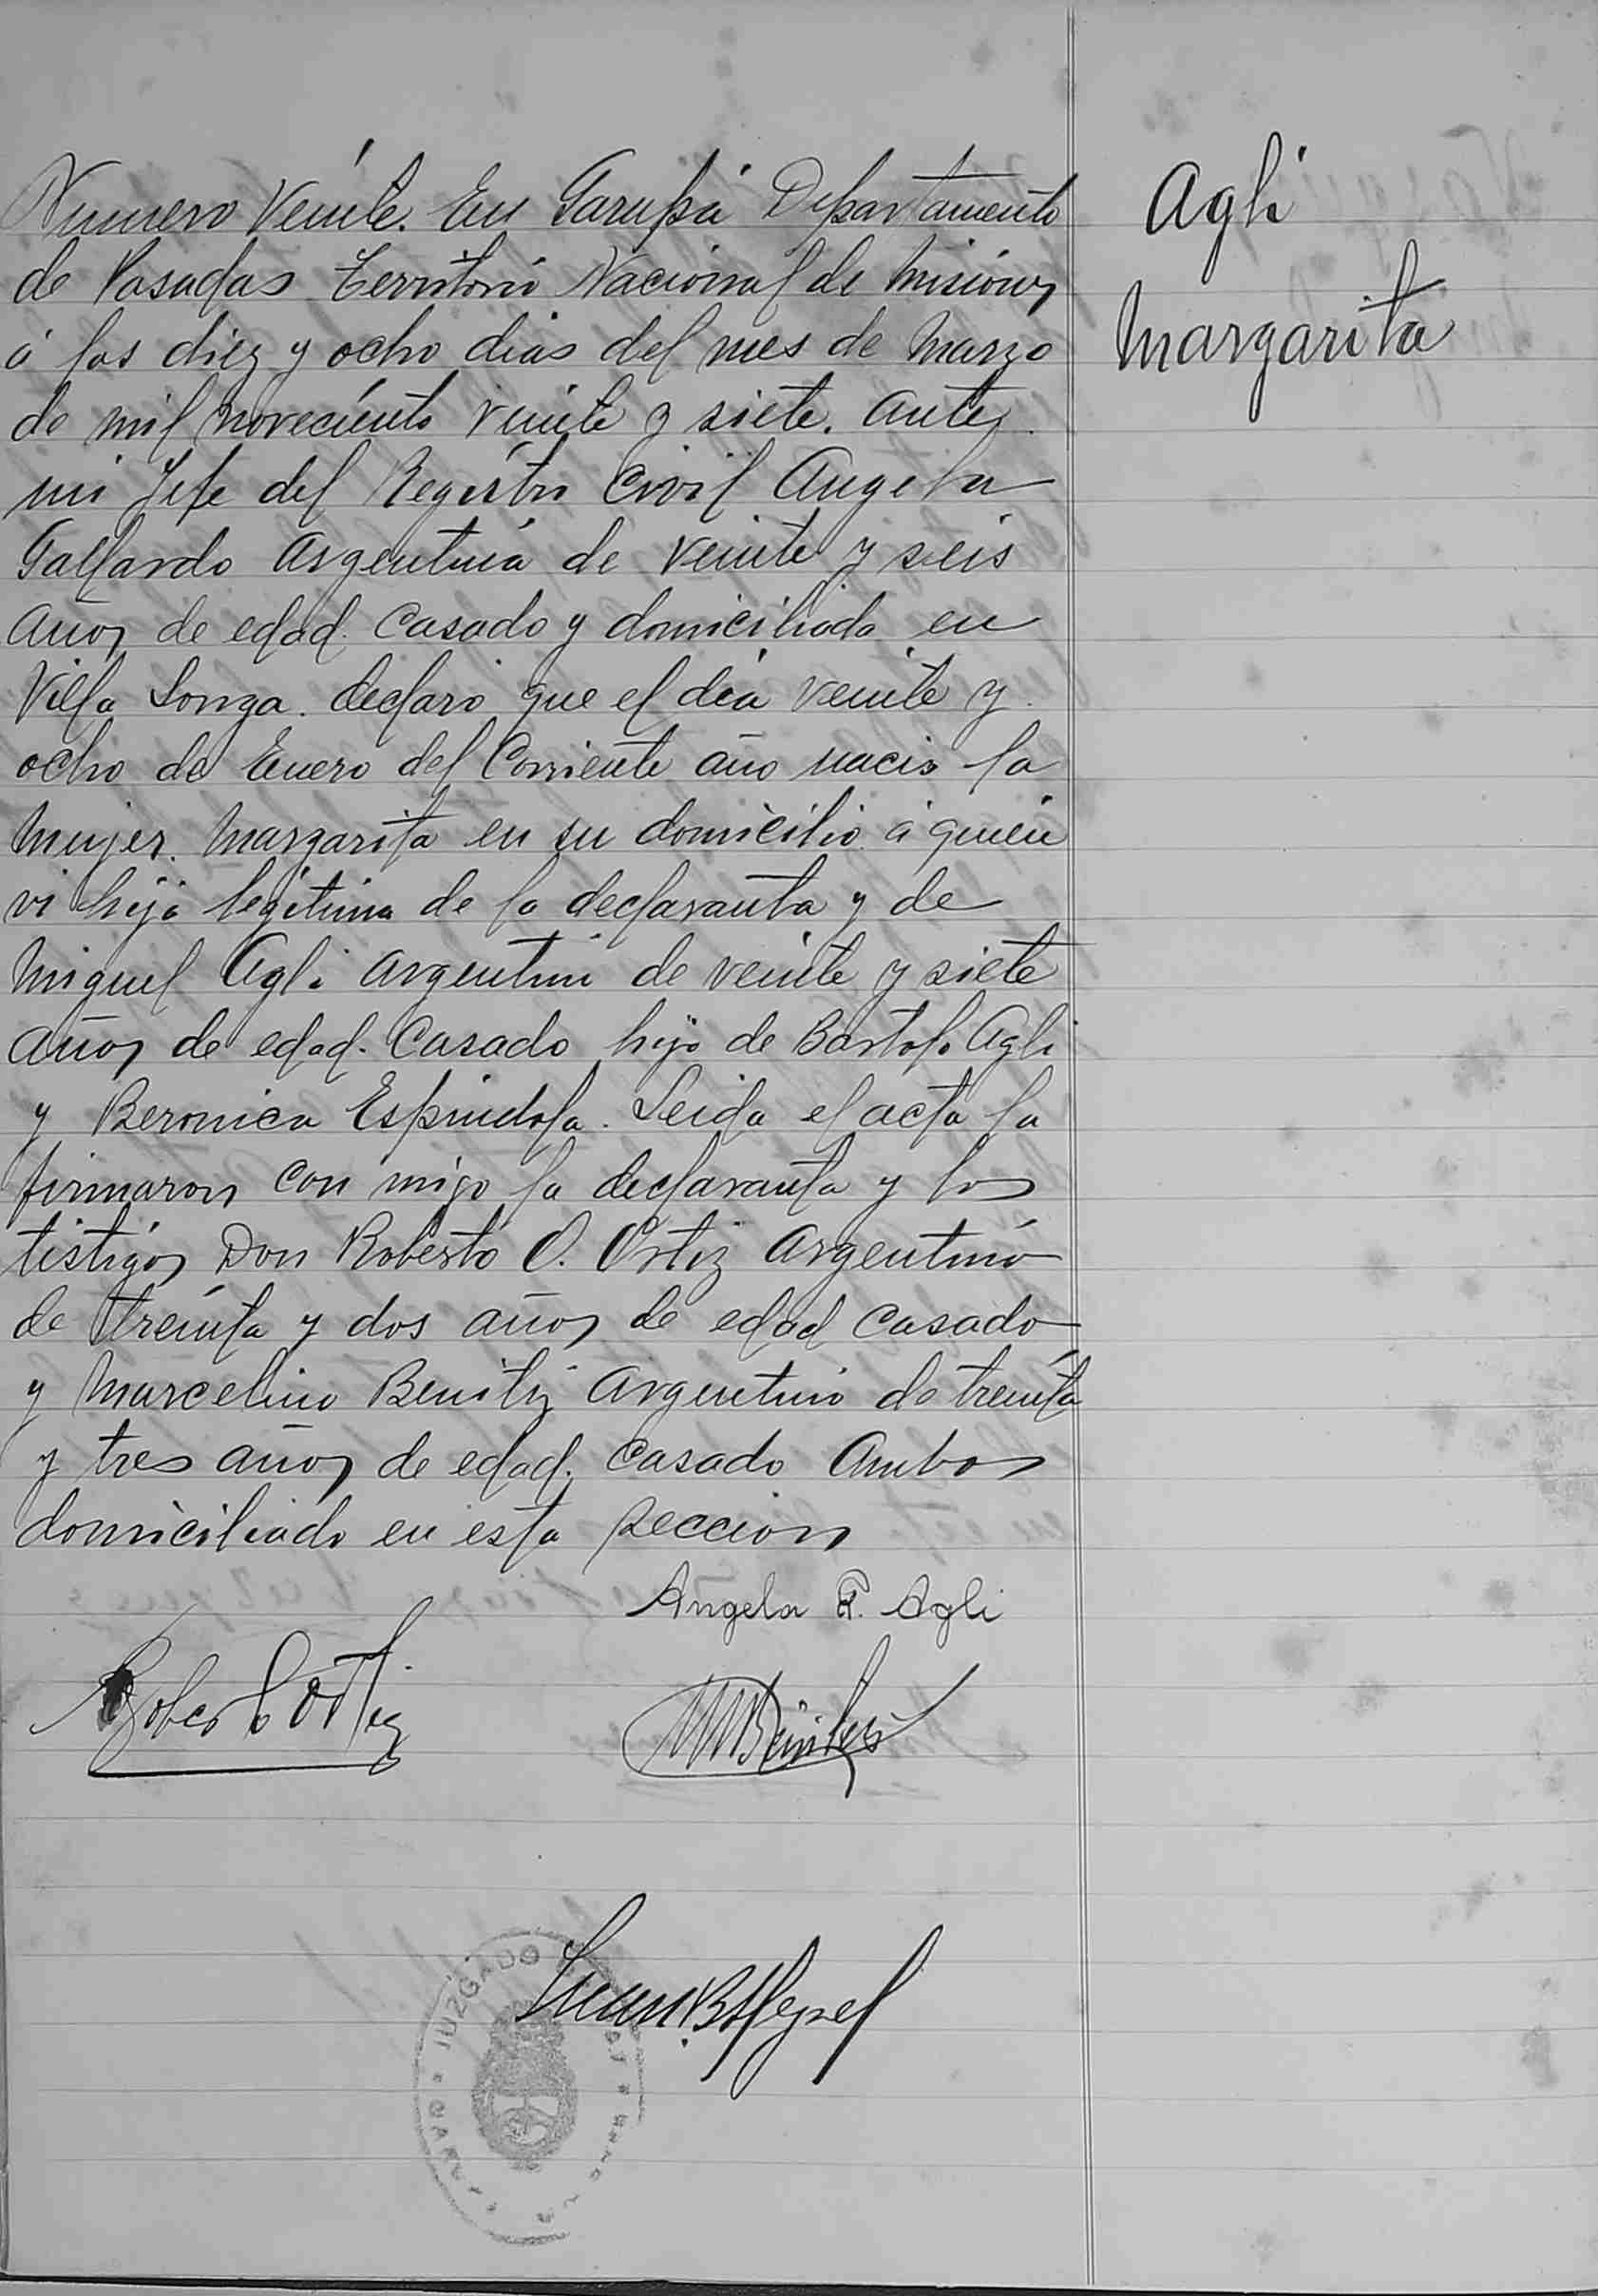 Agli
Margarita
Numero Veinte. En Garupá Departamento
de Posadas Territorio Nacional de Misiones
á los diez y ocho dias del mes de Marzo
de mil noveciento veinte y siete. Ante
mi Jefe del Registro Civil Angela
Gallardo Argentina de veinte y seis
años de edad. Casado y domiciliada en
Villa Longa. declaro que el dia veinte y
ocho de Enero del Corriente año nacio la
Mujer. Margarita en su domicilio á quien
vi hija legitima de la declaranta y de
Miguel Agli Argentino de veinte y siete
años de edad. Casado hijo de Bartolo Agli
y Beronica Espindola. Leida el acta la
firmaron con migo la declaranta y los
testigos Don Roberto O. Ortiz Argentino
de treinta y dos años de edad Casado
y Marcelino Benitez Argentino de treinta
y tres años de edad. Casado Ambos
domiciliado en esta seccion
Angela G. Agli
Roberto Ortiz
M Benitez
JUZGADO